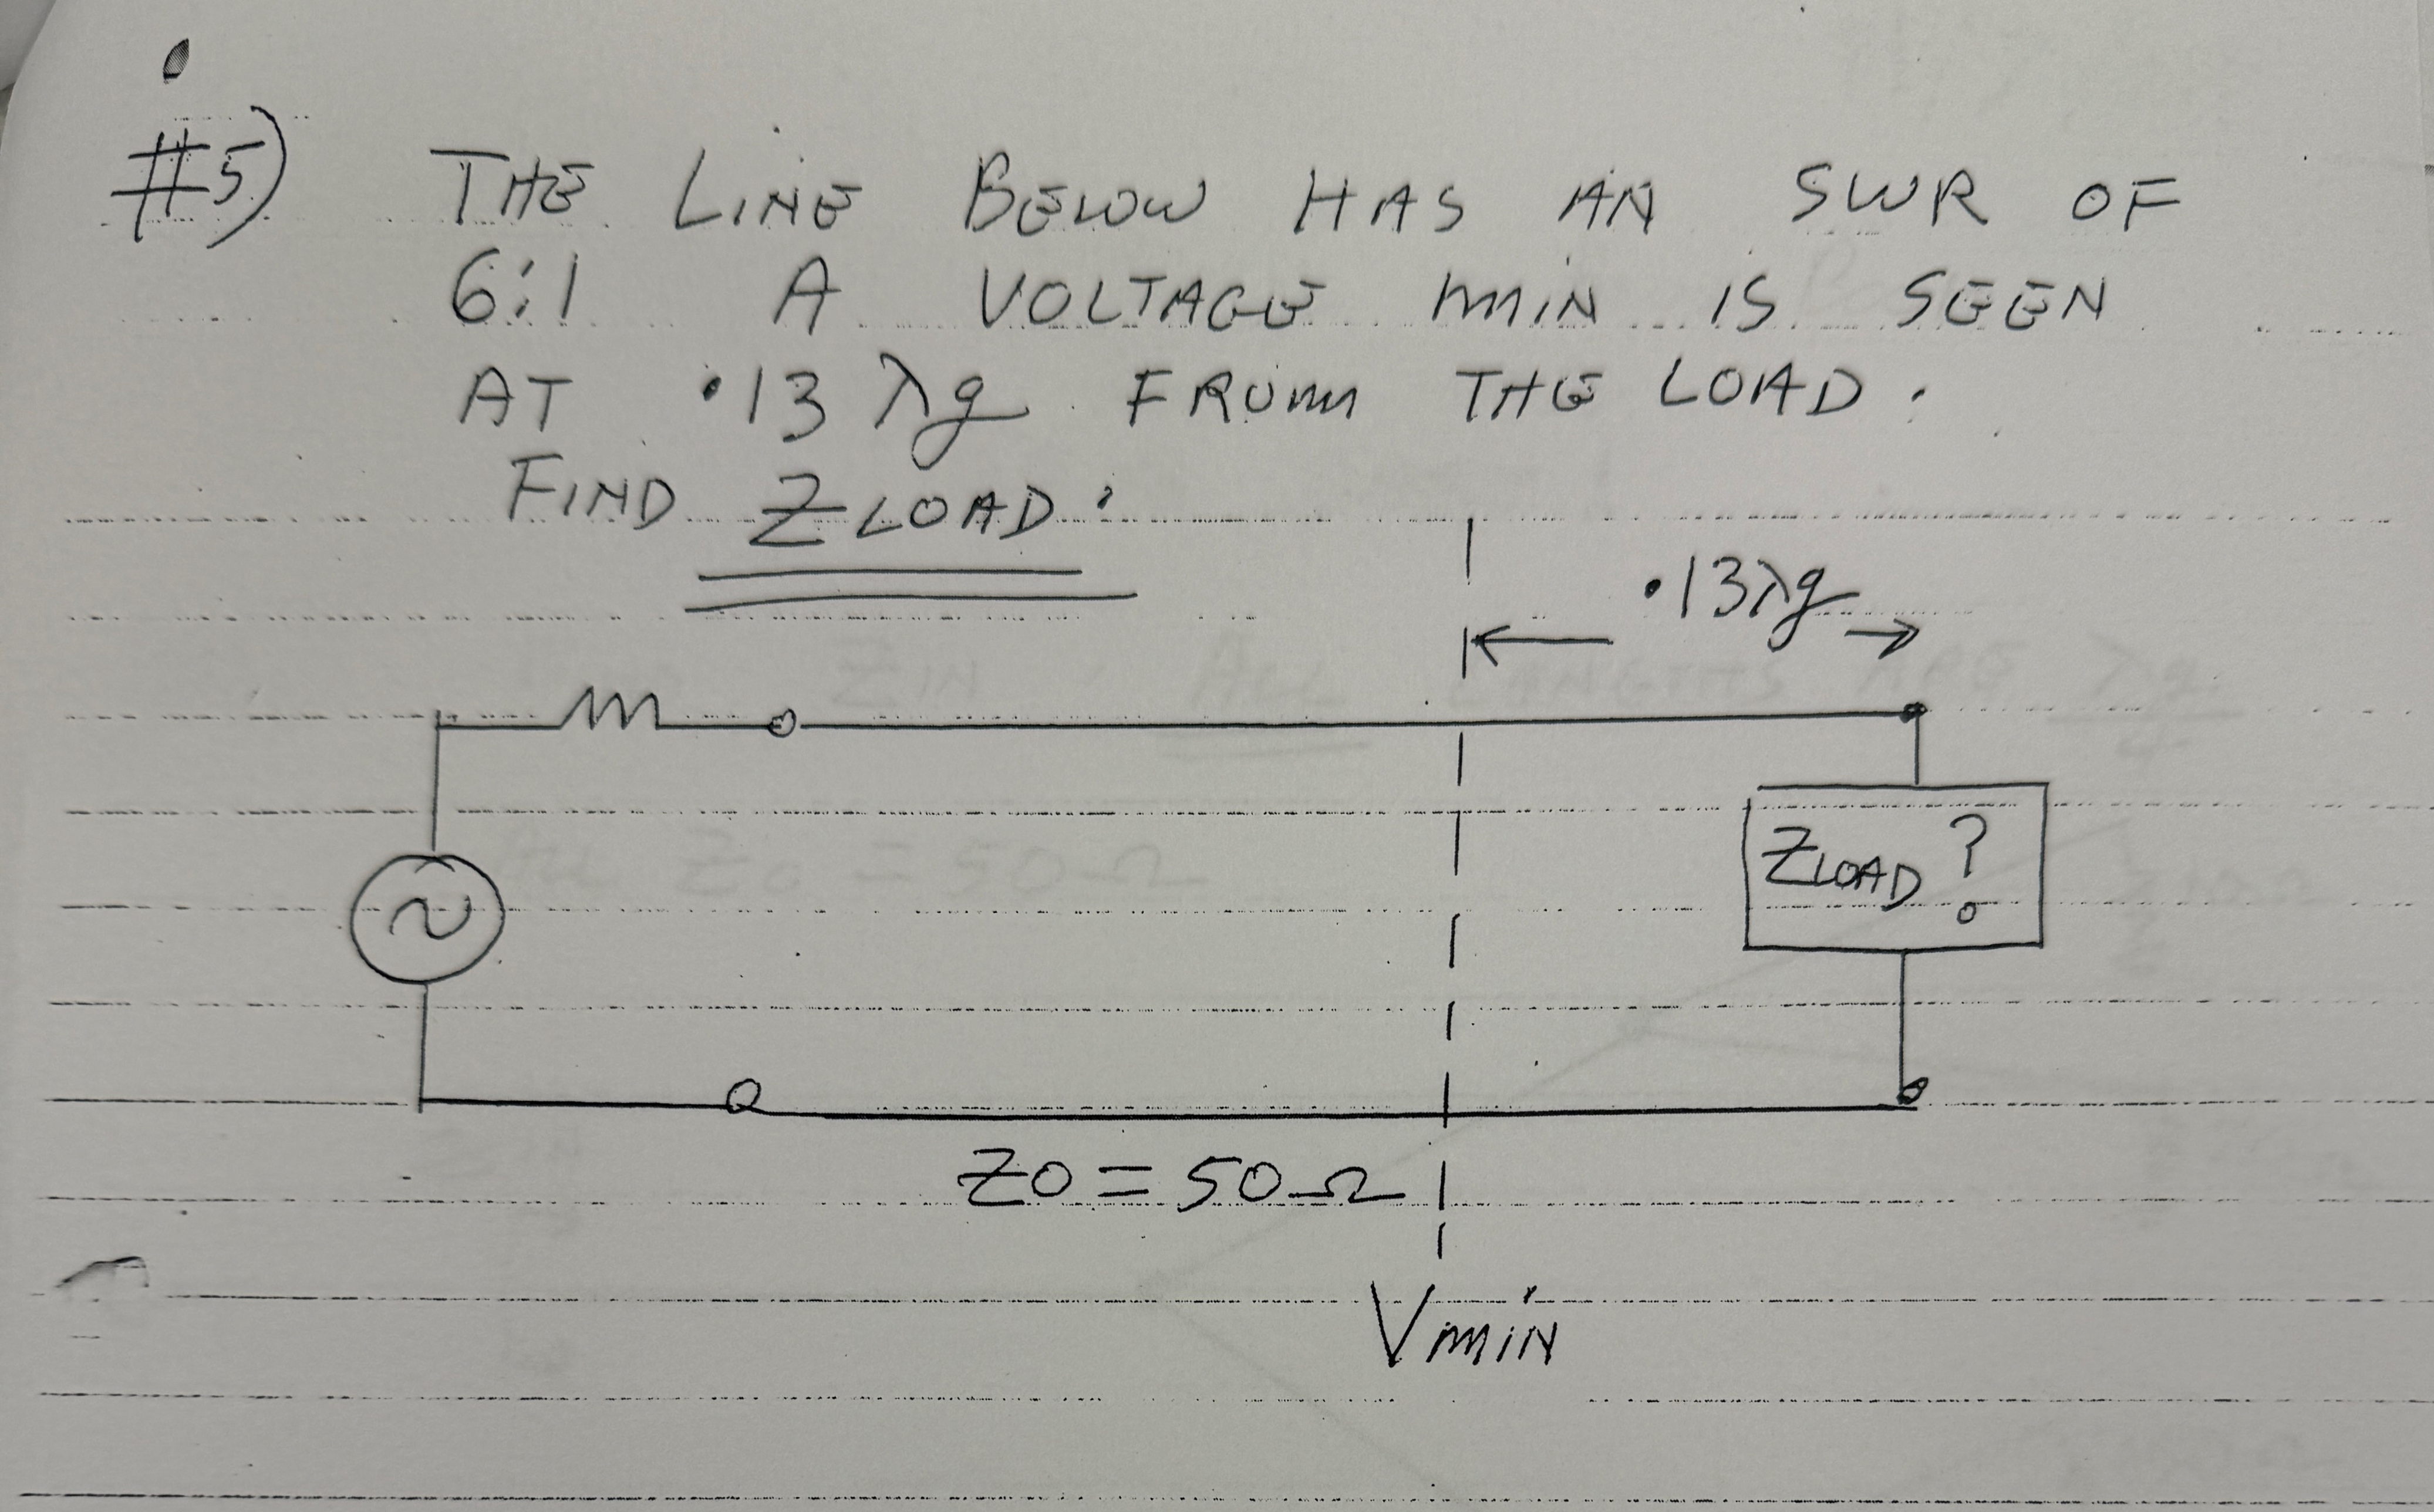 #5) THE LINE BELOW HAS AN SWR OF
6:1 A VOLTAGE MIN IS SEEN
AT .13 λg FROM THE LOAD.
FIND ZLOAD.
.13λg
ZLOAD ?
Z0 = 50Ω
VMIN